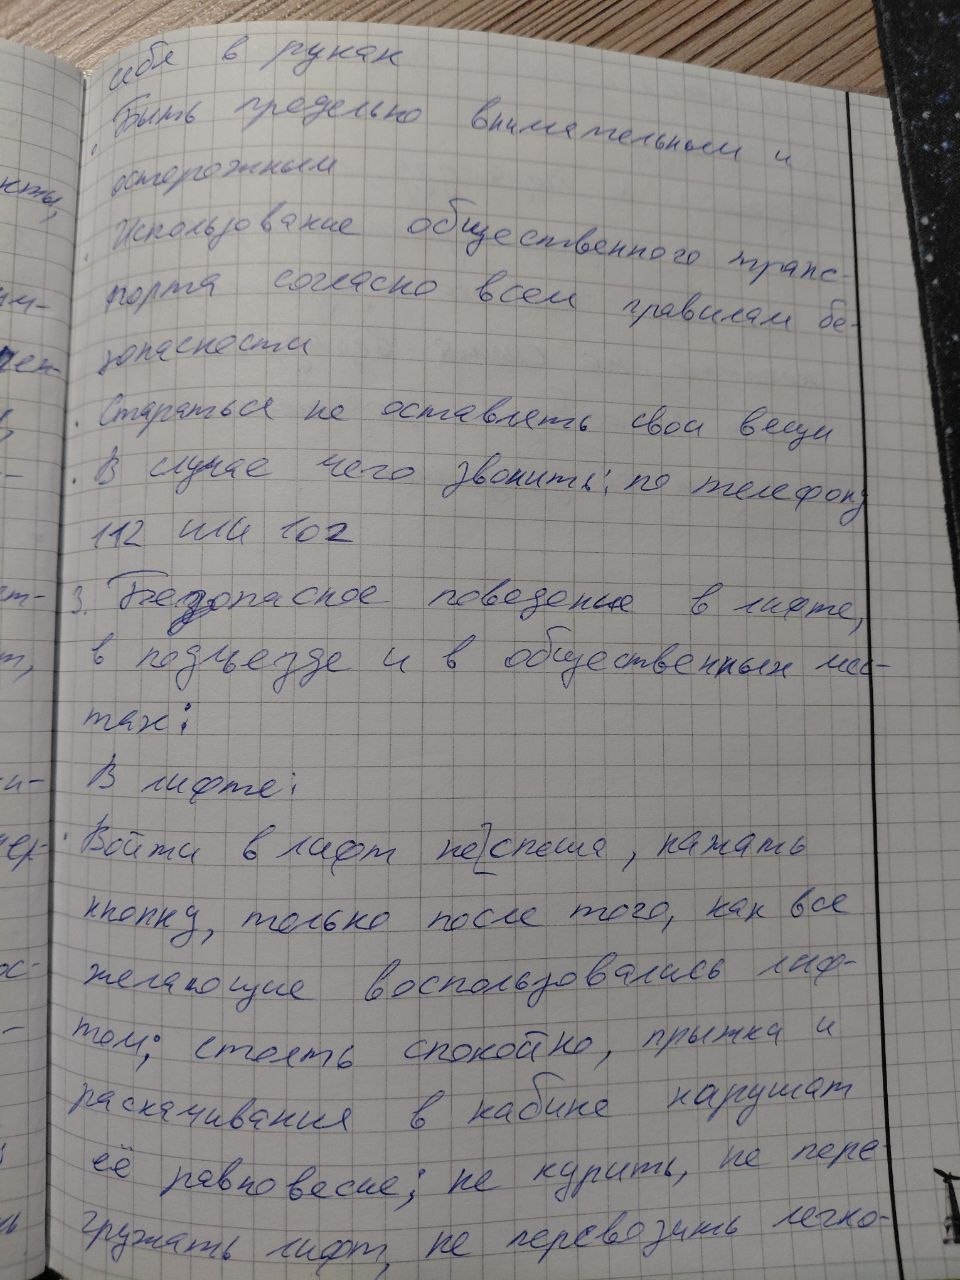 кты,
им-
чен-
ст-
т,
и-
чер-
ос-
себя в руках
· Быть предельно внимательным и
осторожным
· Использование общественного транс-
порта согласно всем правилам бе-
зопасности
· Стараться не оставлять свои вещи
· В случае чего звонить: по телефону
112 или 102
3. Безопасное поведение в лифте,
в подъезде и в общественных мес-
тах:
В лифте:
· Войти в лифт не спеша, нажать
кнопку, только после того, как все
желающие воспользовались лиф-
том; стоять спокойно, прыжки и
раскачивания в кабине нарушат
её равновесие; не курить, не пере-
гружать лифт, не перевозить легко-